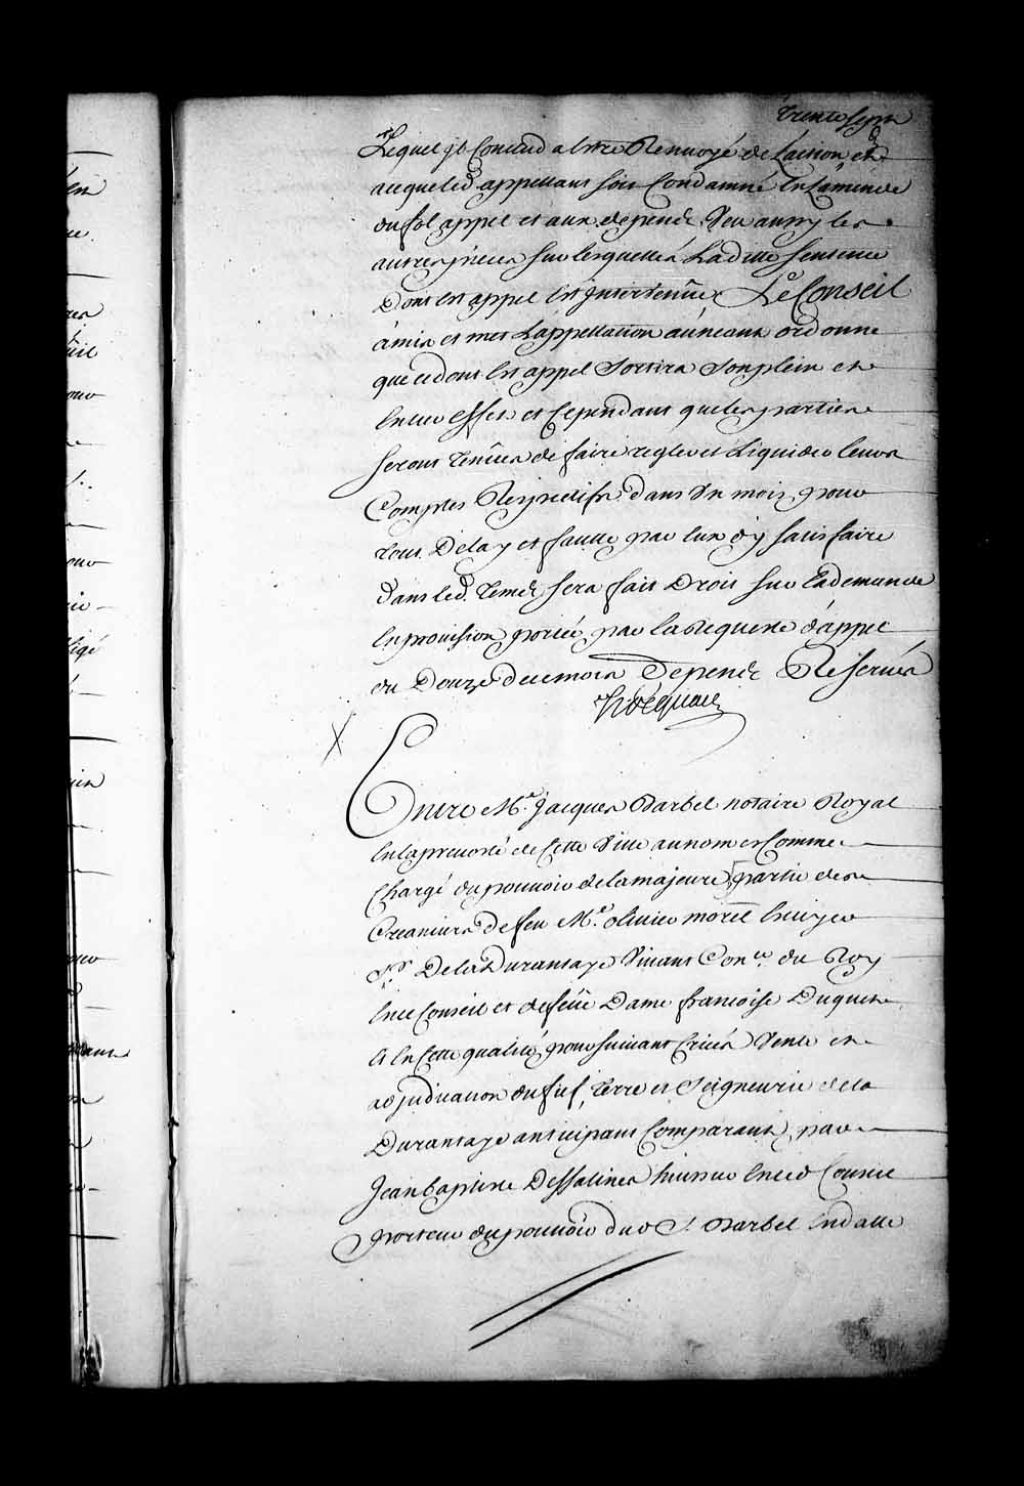 trente sept
Lequel il Conclud a Estre Renvoyé de Laction, et
a ceque led. appellant soit Condamné En Lamende
du fol appel et aux depends, Veu aussy les
autres pieces sur lesquelles Laditte sentence
Dont est appel est Intervenüe Le Conseil
á mis et met Lappellation au neant ordonne
que ce dont est appel Sortira Son plein et
Entier effet et Cependant que les parties
seront tenües de faire regler et Liquider leurs
Comptes Respectifs dans Un mois, pour
tout Delay et faute par Eux d'y satisfaire
dans led. temps sera fait Droit sur la demande
En provision portée par la Requeste d'appel
du Douze de ce mois Depends Reservés
Hocquart
Entre Me. Jacques Barbel notaire Royal
En la prevosté de Cette Ville au nom et Comme
Chargé du pouvoir de la majeure partie des
Creanciers de feu Me. olivier morel Ecuyer
Sr. De la Durantaye Vivant Coner. du Roy
En ce Conseil et de feüe Dame françoise Duquet
Et En Cette qualité, poursuivant Criées Vente et
adjudication du fief, terre et Seigneurie de la
Durantaye anticipant Comparant, par
Jean baptiste Dessalines huissier En ced. Conseil
porteur du pouvoir dud. S. Barbel En datte